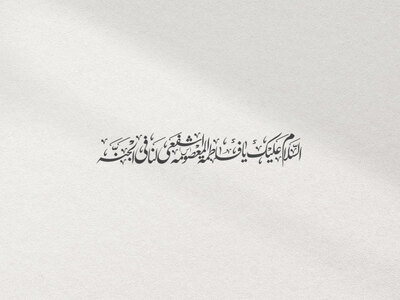 السلام علیک یا فاطمة المعصومه اشفعی لنا فی الجنه